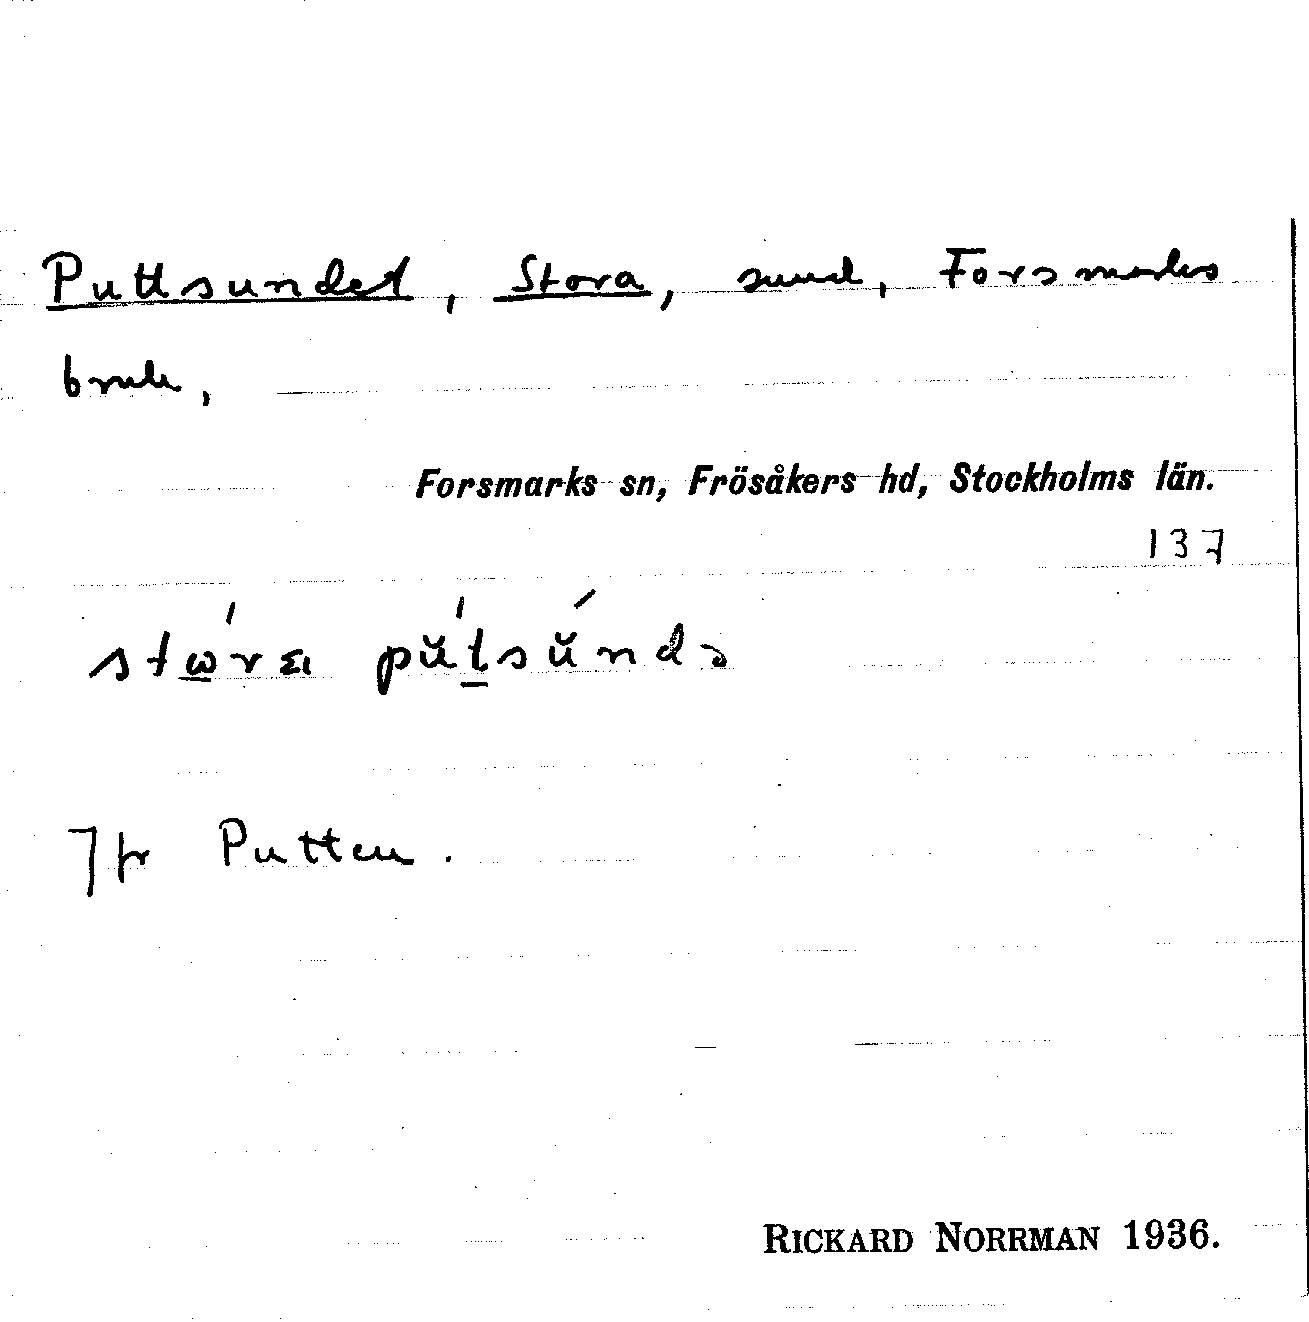 Puttsundet, Stora, sund, Forsmarks
bruk,
Forsmarks sn, Frösåkers hd, Stockholms län.
137
Jfr Putten.
RICKARD NORRMAN 1936.